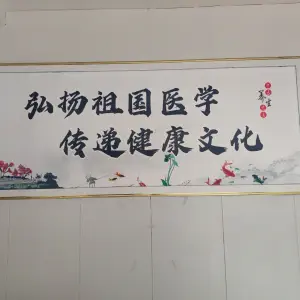 弘扬祖国医学
传递健康文化
养生